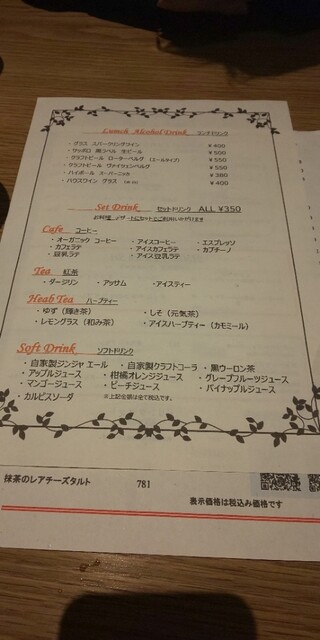 Lunch Alcohol Drink ランチドリンク
・グラス スパークリングワイン ¥400
・サッポロ 黒ラベル 生ビール ¥500
・クラフトビール ローターベルグ (エールタイプ) ¥550
・クラフトビール ヴァイツェンベルグ ¥550
・ハイボール スーパーニッカ ¥380
・ハウスワイン グラス ¥400
Set Drink セットドリンク ALL ¥350
お料理、デザートにセットでご利用いただけます
Cafe コーヒー
・オーガニック コーヒー ・アイスコーヒー ・エスプレッソ
・カフェラテ ・アイスカフェラテ ・カプチーノ
・豆乳ラテ ・アイス豆乳ラテ
Tea 紅茶
・ダージリン ・アッサム ・アイスティー
Heab Tea ハーブティー
・ゆず (輝き茶) ・しそ (元気茶)
・レモングラス (和み茶) ・アイスハーブティー (カモミール)
Soft Drink ソフトドリンク
・自家製ジンジャ エール ・自家製クラフトコーラ ・黒ウーロン茶
・アップルジュース ・柑橘オレンジジュース ・グレープフルーツジュース
・マンゴージュース ・ピーチジュース ・パイナップルジュース
・カルピスソーダ ※上記金額は全て税込です。
抹茶のレアチーズタルト 781
表示価格は税込み価格です